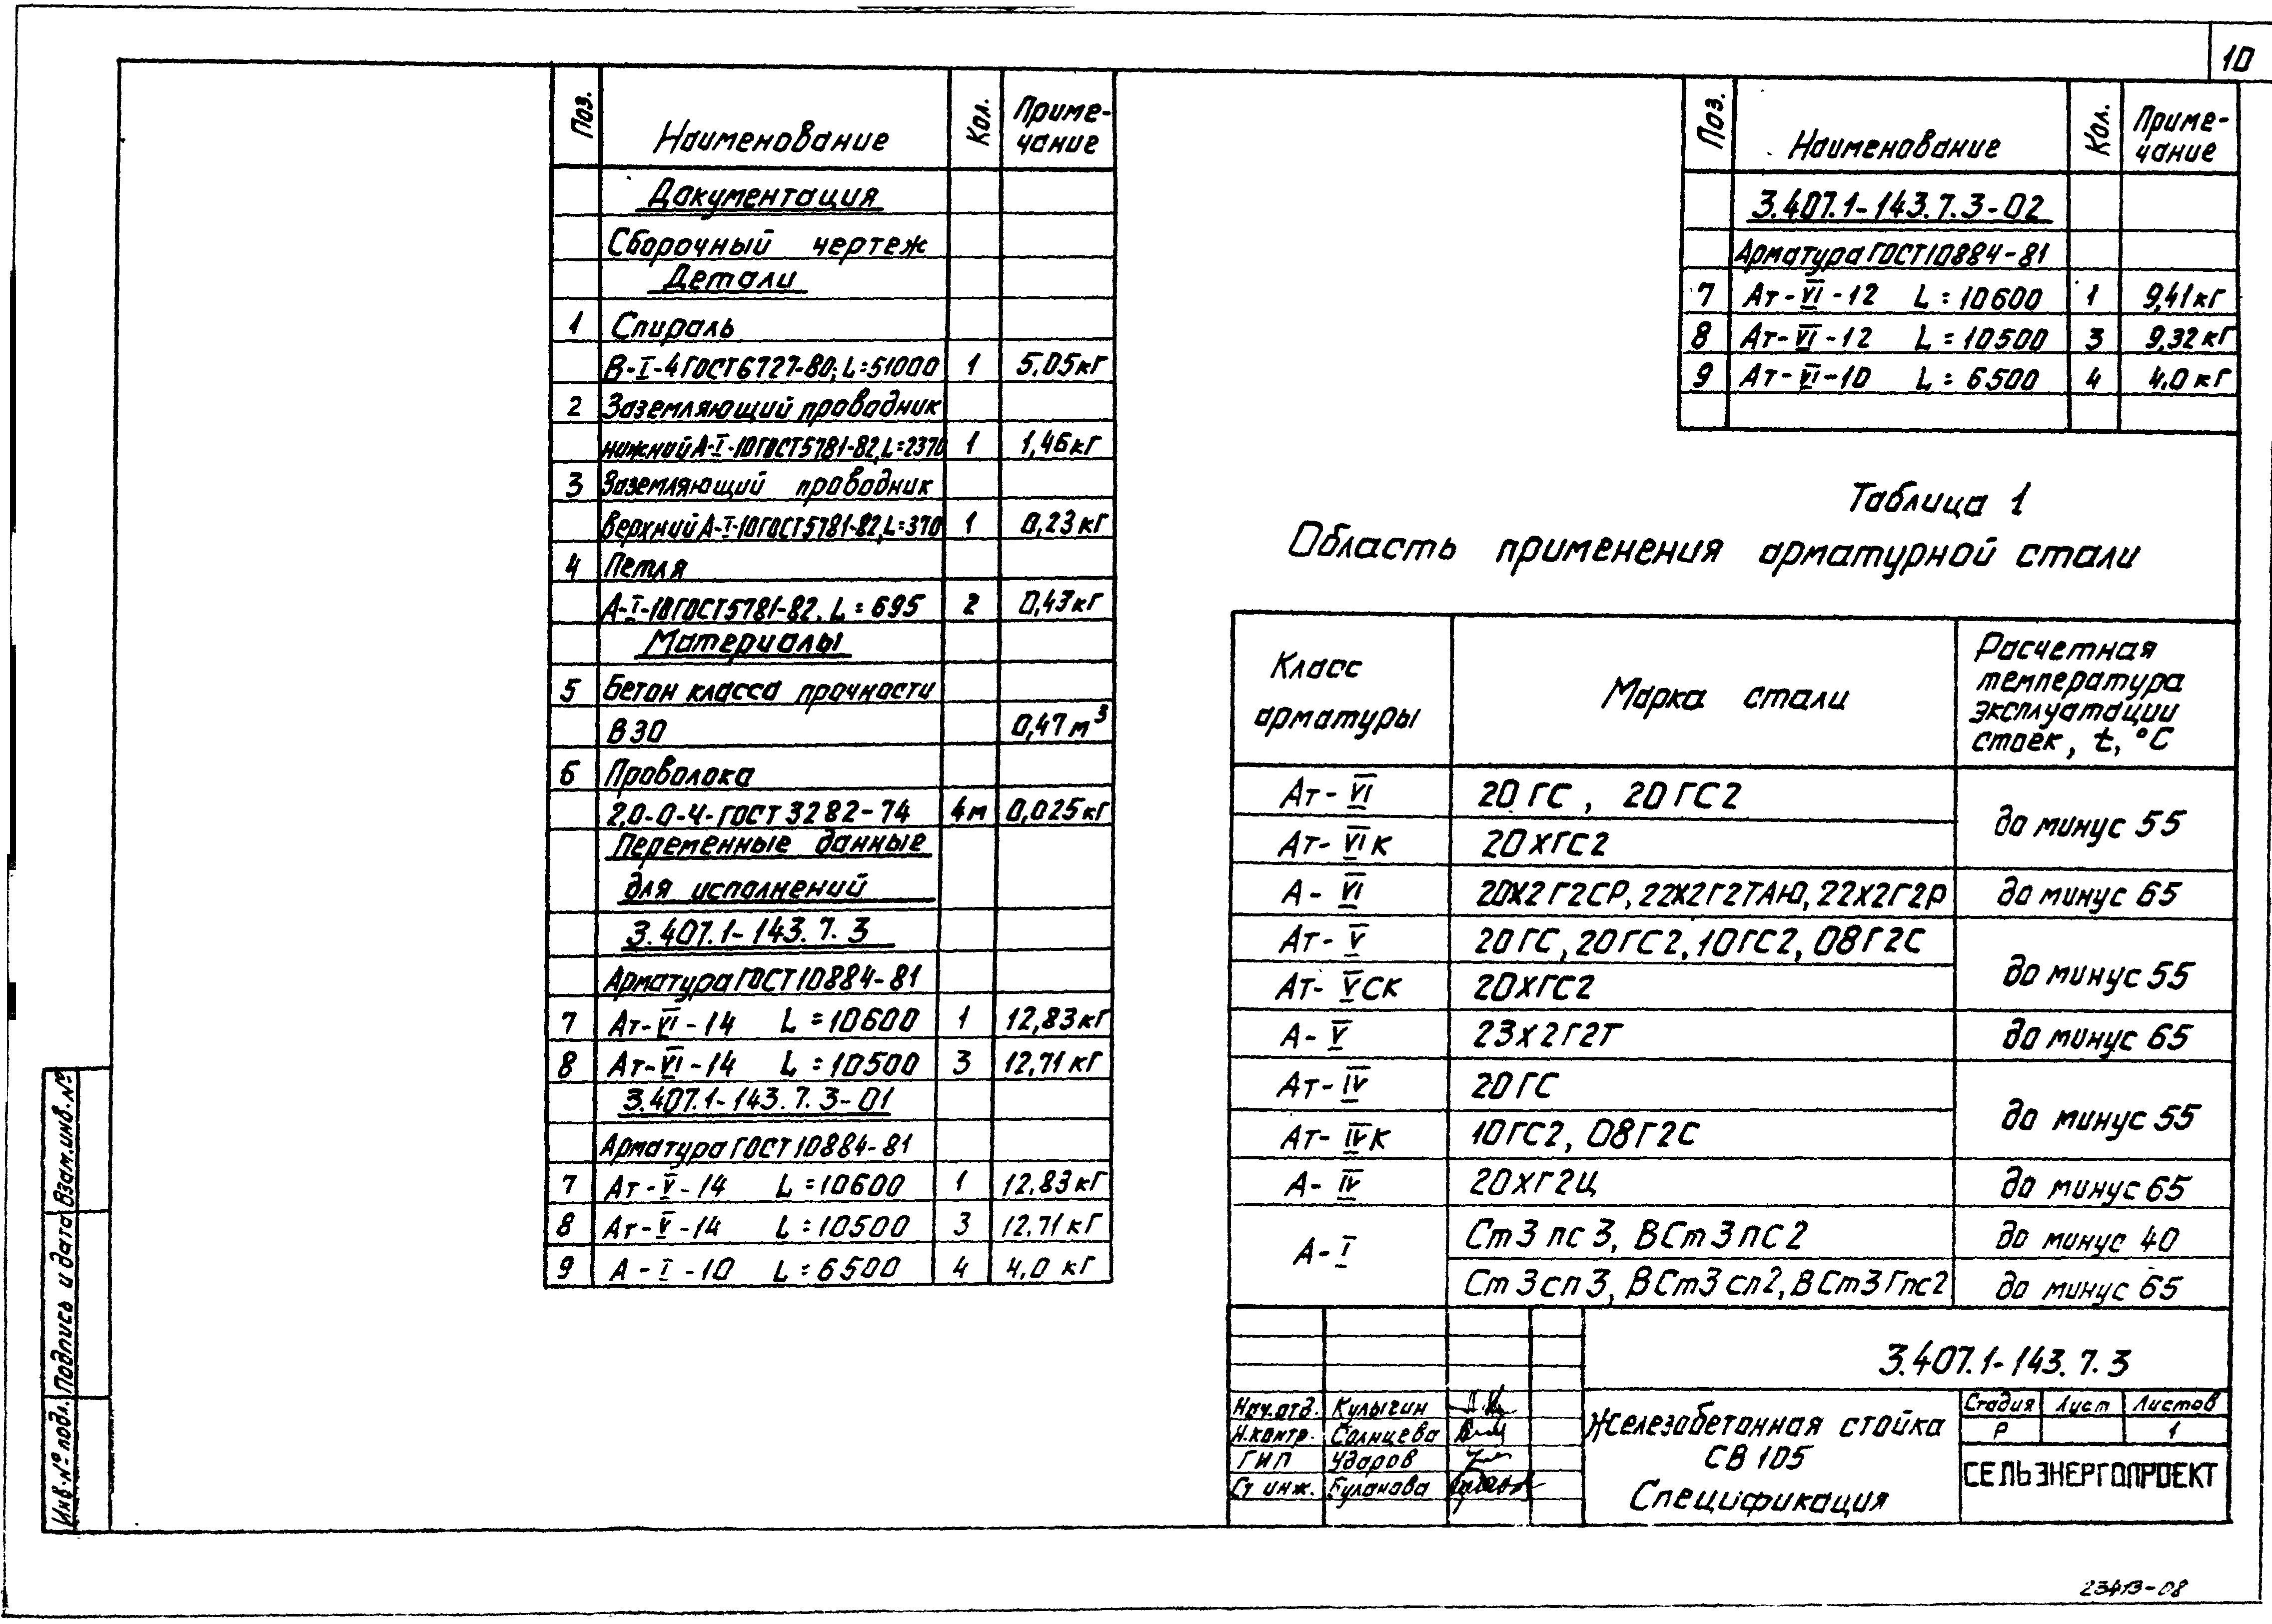 10
Поз. Наименование Кол. Приме-
чание
Документация
Сборочный чертеж
Детали
1 Спираль
В-I-4 ГОСТ 6727-80; L=51000 1 5.05кг
2 Заземляющий проводник
нижний А-I-10 ГОСТ 5781-82, L=2370 1 1,46кг
3 Заземляющий проводник
верхний А-I-10 ГОСТ 5781-82, L=370 1 0,23кг
4 Петля
А-I-10 ГОСТ 5781-82, L=695 2 0,43кг
Материалы
5 Бетон класса прочности
В 30 0,47 м³
6 Проволока
2,0-0-Ч-ГОСТ 3282-74 4м 0,025кг
Переменные данные
для исполнений
3.407.1-143.7.3
Арматура ГОСТ 10884-81
7 Ат-VI-14 L=10600 1 12,83кг
8 Ат-VI-14 L=10500 3 12,71кг
3.407.1-143.7.3-01
Арматура ГОСТ 10884-81
7 Ат-V-14 L=10600 1 12.83кг
8 Ат-V-14 L=10500 3 12.71кг
9 А-I-10 L=6500 4 4,0 кг
Поз. Наименование Кол. Приме-
чание
3.407.1-143.7.3-02
Арматура ГОСТ 10884-81
7 Ат-VI-12 L=10600 1 9,41кг
8 Ат-VI-12 L=10500 3 9,32кг
9 Ат-VI-10 L=6500 4 4,0кг
Таблица 1
Область применения арматурной стали
Класс
арматуры
Марка стали
Расчетная
температура
эксплуатации
стоек, t, °C
Ат-VI 20ГС, 20ГС2 до минус 55
Ат-VIК 20ХГС2
А-VI 20Х2Г2СР, 22Х2Г2ТАЮ, 22Х2Г2Р до минус 65
Ат-V 20ГС, 20ГС2, 10ГС2, 08Г2С до минус 55
Ат-VСК 20ХГС2
А-V 23Х2Г2Т до минус 65
Ат-IV 20ГС до минус 55
Ат-IVК 10ГС2, 08Г2С
А-IV 20ХГ2Ц до минус 65
А-I Ст3пс3, ВСт3пс2 до минус 40
Ст3сп3, ВСт3сп2, ВСт3Гпс2 до минус 65
3.407.1-143.7.3
Нач.отд. Кулыгин
Н.контр. Солнцева
ГИП Ударов
Ст инж. Буланова
Железобетонная стойка
СВ 105
Спецификация
Стадия Лист Листов
Р 1
СЕЛЬЭНЕРГОПРОЕКТ
Инв.№ подл. Подпись и дата Взам.инв.№
23413-08